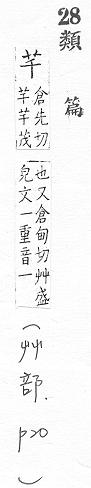 28
類篇
芊
倉先切
芊芊茂
也又倉甸切艸盛
皃文一重音一
(艸部. p20)